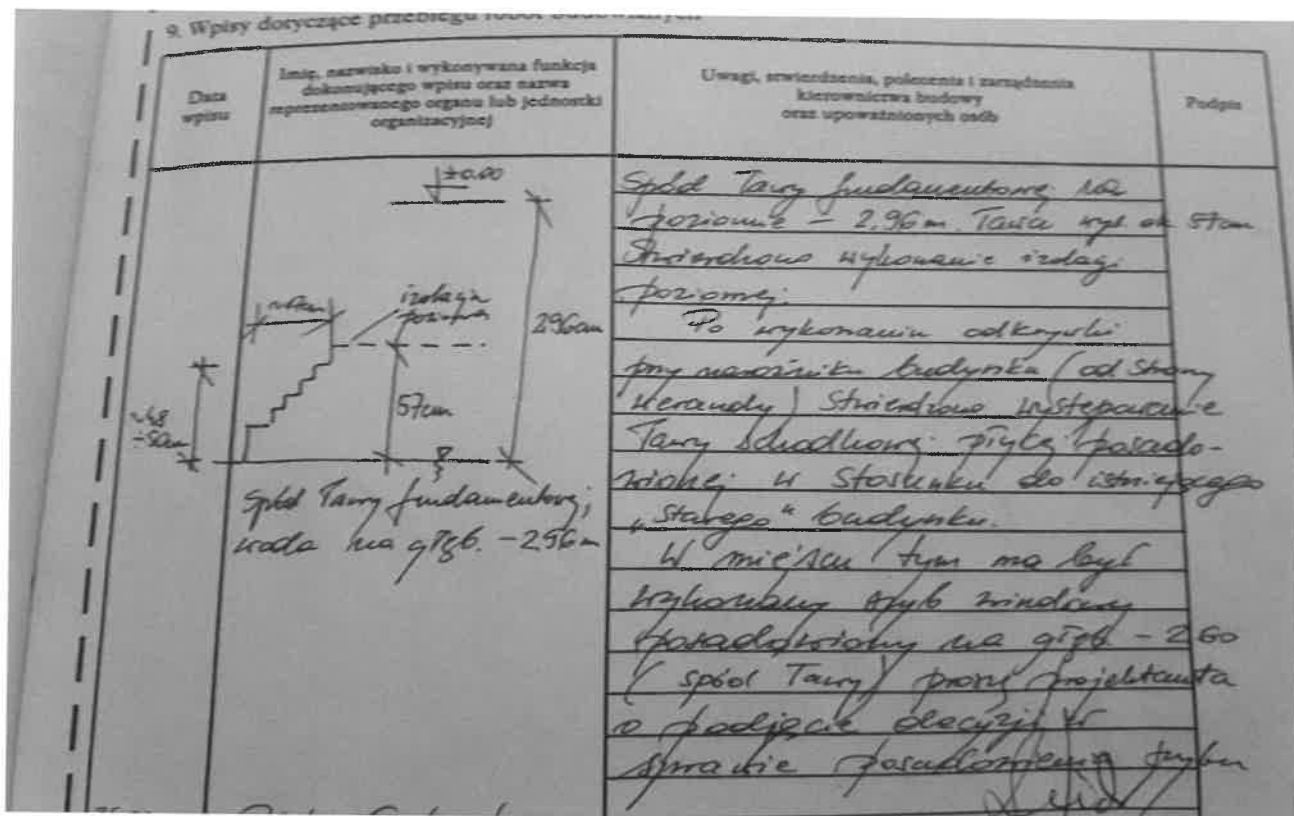 9. Wpisy dotyczące przebiegu robót budowlanych
Data
wpisu
Imię, nazwisko i wykonywana funkcja
dokonującego wpisu oraz nazwa
reprezentowanego organu lub jednostki
organizacyjnej
Uwagi, stwierdzenia, polecenia i zarządzenia
kierownictwa budowy
oraz upoważnionych osób
Podpis
±0.00
izolacja
pozioma
296cm
57cm
~48
÷50cm
spód ławy fundamentowej;
woda na głęb. -296m
Spód ławy fundamentowej na
poziomie - 2,96m. Ława wys. ok 57cm
Stwierdzono wykonanie izolacji
poziomej.
Po wykonaniu odkrywki
przy narożniku budynku (od strony
werandy) stwierdzono występowanie
ławy schodkowej płycej posado-
wionej w stosunku do istniejącego
"starego" budynku.
W miejscu tym ma być
wykonany szyb windowy
posadowiony na głęb. - 260
(spód ławy) proszę projektanta
o podjęcie decyzji w
sprawie posadowienia szybu